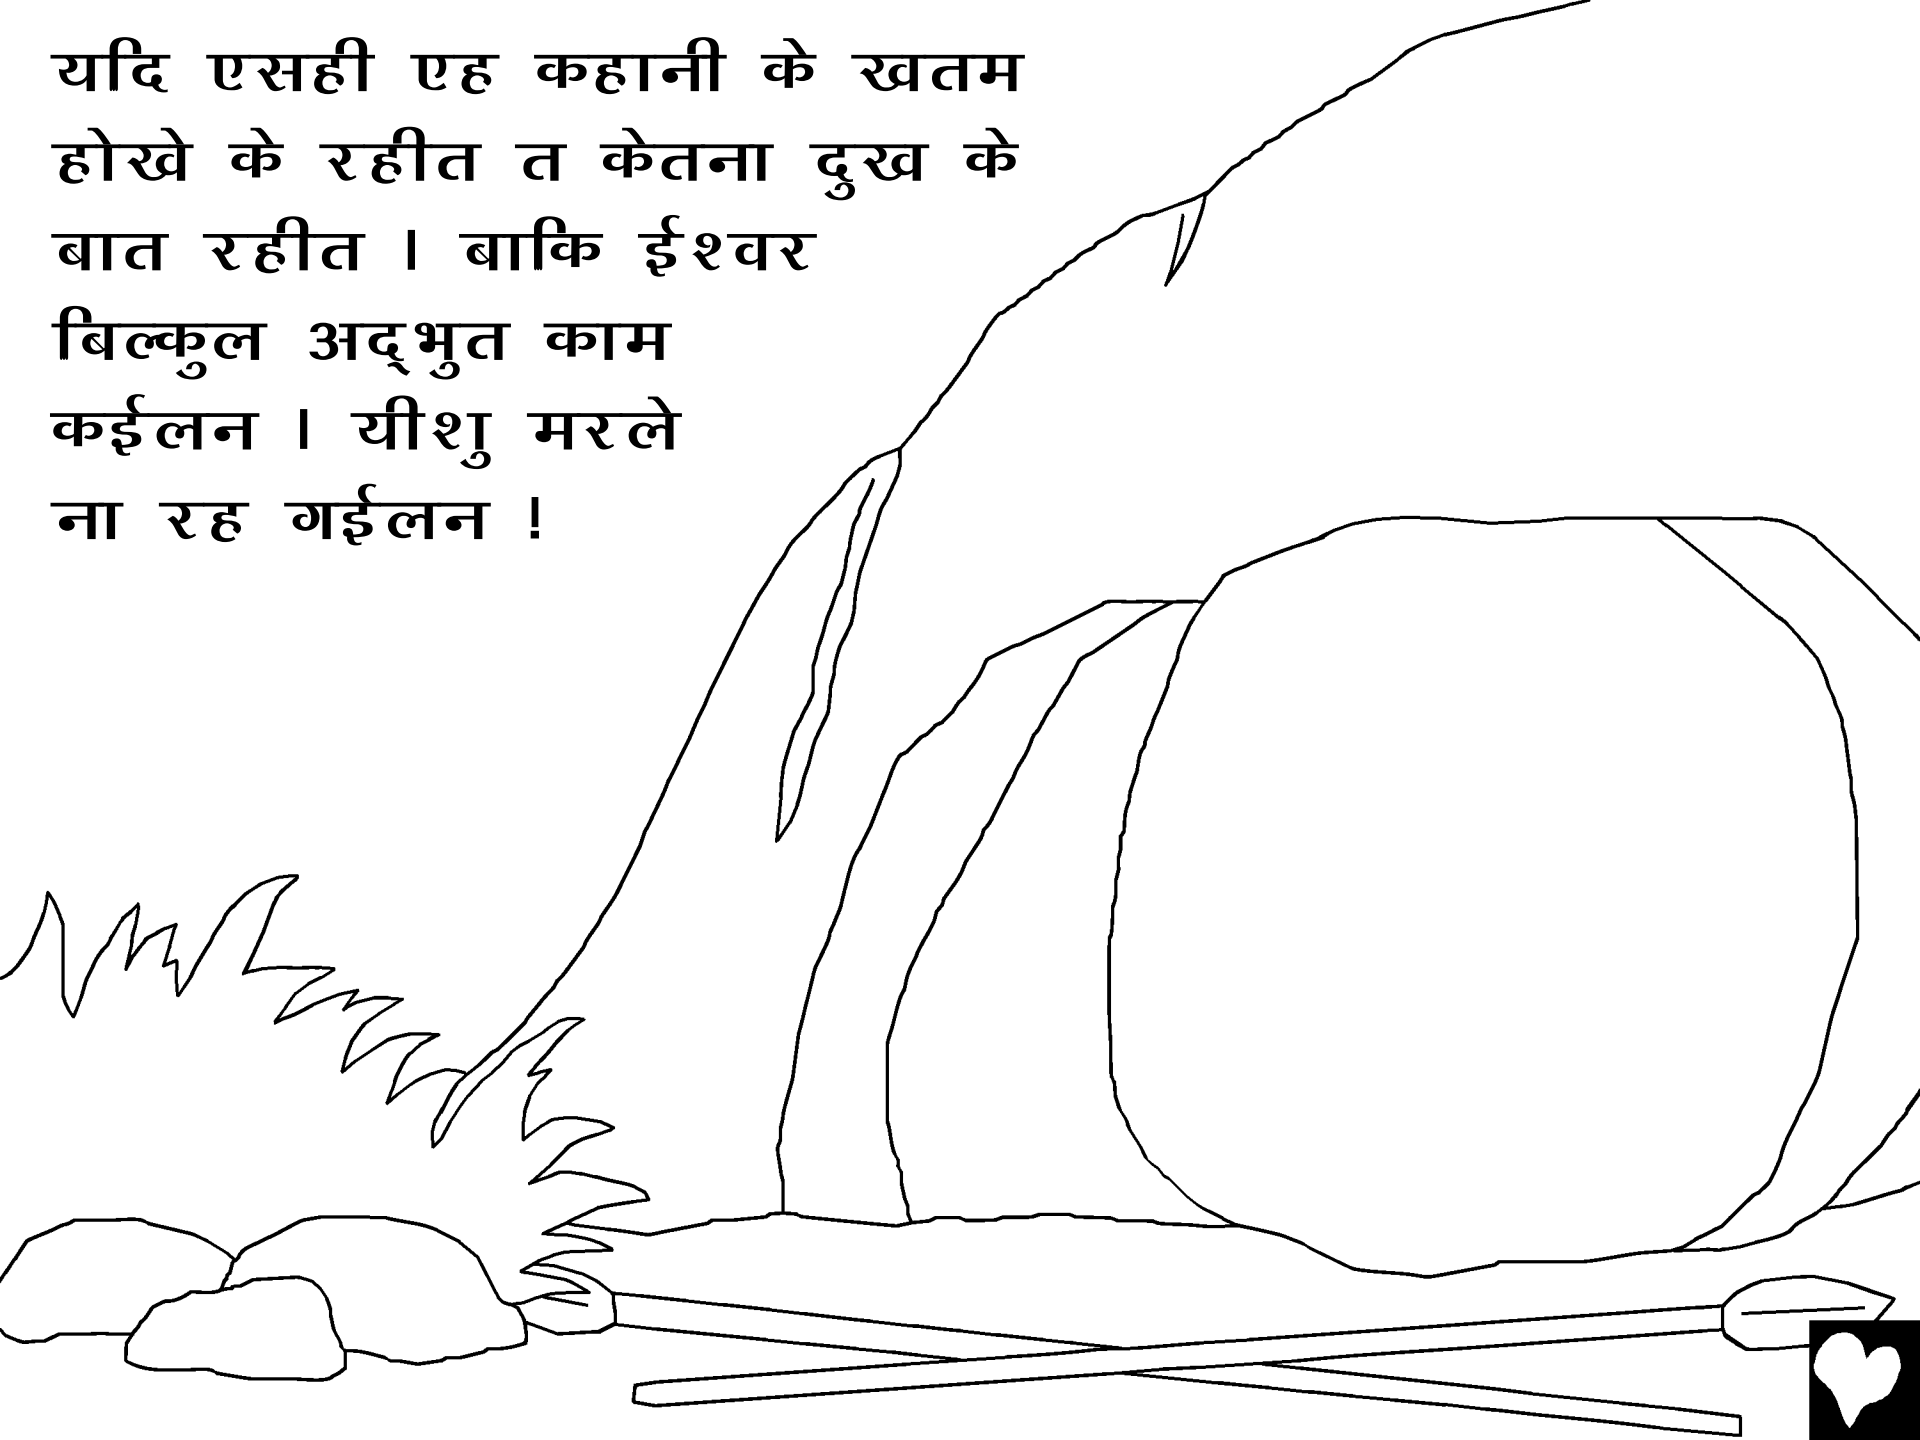 यदि एसही एह कहानी के खतम
होखे के रहीत त केतना दुख के
बात रहीत । बाकि ईश्वर
बिल्कुल अद्‌भुत काम
कईलन । यीशु मरले
ना रह गईलन !